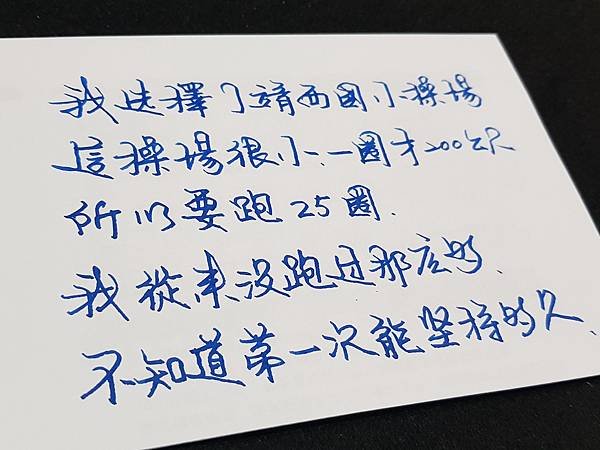 我选擇了靖西國小操場
這操場很小、一圈才200公尺
所以要跑25圈.
我從來沒跑过那麼多、
不知道第一次能堅持多久、